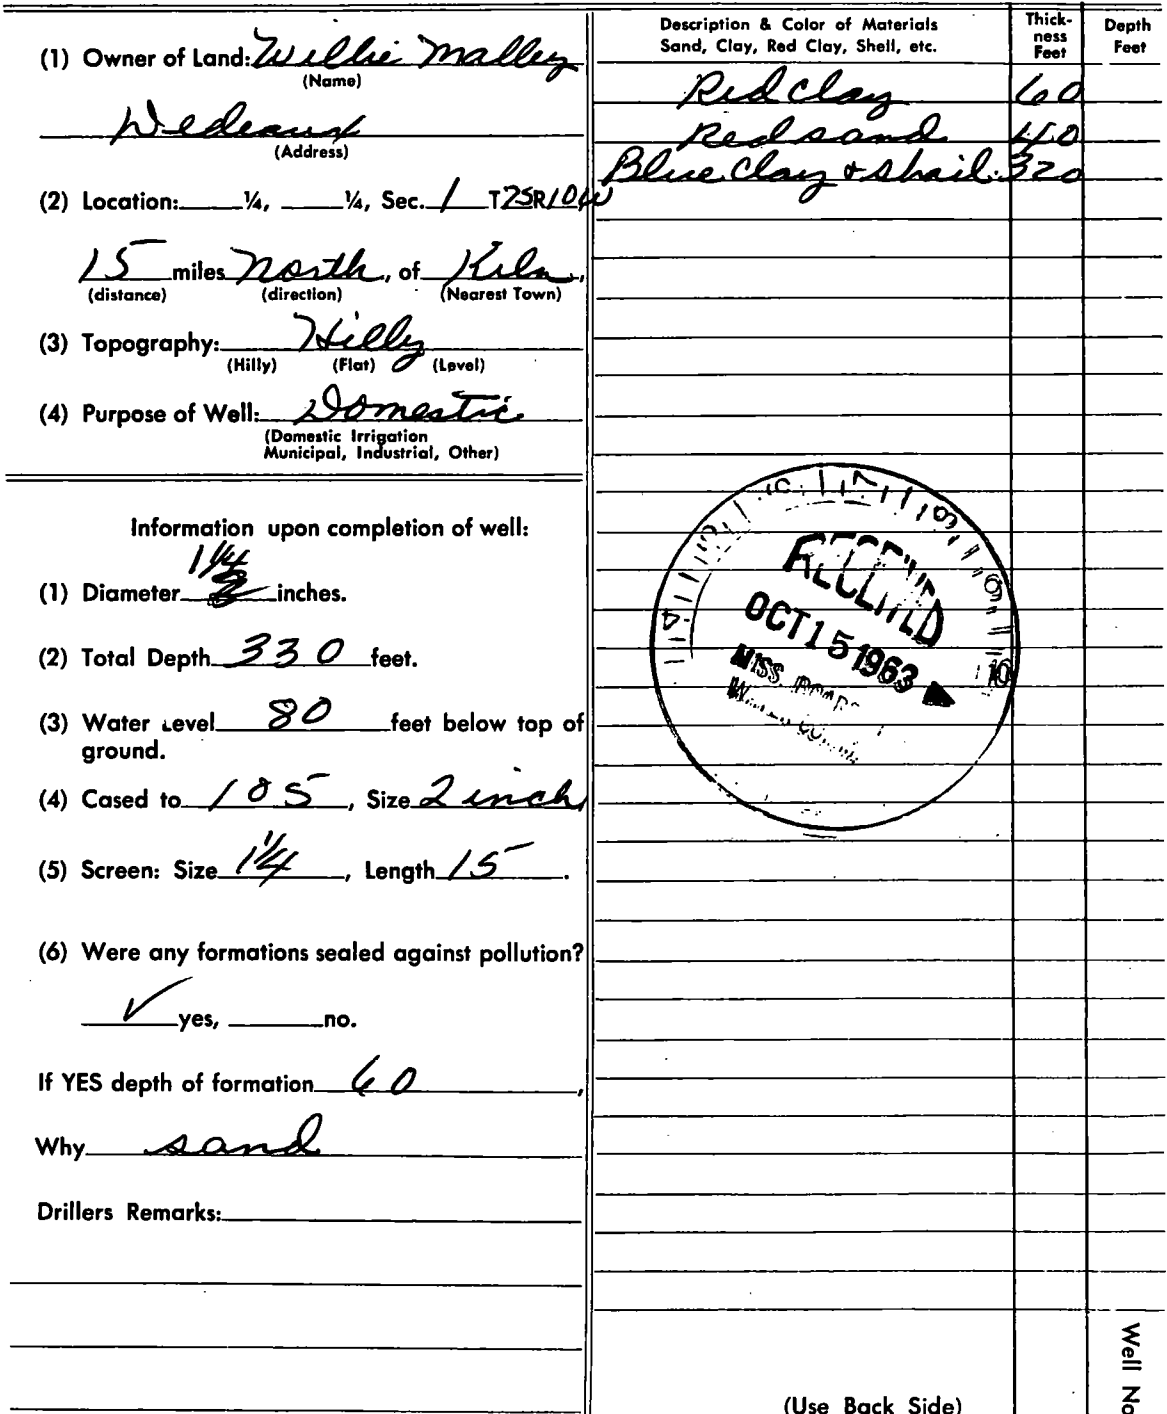 (1) Owner of Land: Willie Malley
(Name)
Dedeaux
(Address)
(2) Location: ¼, ¼, Sec. 1 T7SR10W
15 miles North, of Kiln,
(distance) (direction) (Nearest Town)
(3) Topography: Hilly
(Hilly) (Flat) (Level)
(4) Purpose of Well: Domestic
(Domestic Irrigation
Municipal, Industrial, Other)
Information upon completion of well:
1 1/4
(1) Diameter inches.
(2) Total Depth 330 feet.
(3) Water Level 80 feet below top of
ground.
(4) Cased to 105, Size 2 inch
(5) Screen: Size 1 1/4, Length 15.
(6) Were any formations sealed against pollution?
✓ yes, no.
If YES depth of formation 60,
Why sand
Drillers Remarks:
Description & Color of Materials
Sand, Clay, Red Clay, Shell, etc.
Thick-
ness
Feet
Depth
Feet
Red clay 60
Red sand 40
Blue Clay & shail. 320
RECEIVED
OCT 15 1963
MISS.
(Use Back Side)
Well No